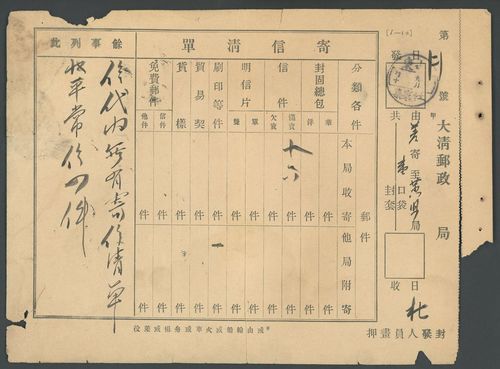 第
號
大清郵政
局
[1—10]
日
發
由
寄至
局
共
口袋
封套
日
收
封發人員畫押
寄信清單
分類各件
本局收寄郵件
他局附寄
封固總包
華
洋
信件
備資
欠資
十六
明信片
單
雙
刷印等件
一
貿易契
貨樣
免費郵件
信件
他件
件 件 件 件 件 件 件 件 件 件 件
件 件 件 件 件 件 件 件 件 件 件
餘事列此
信代内所有寄信清單
收平常信四件